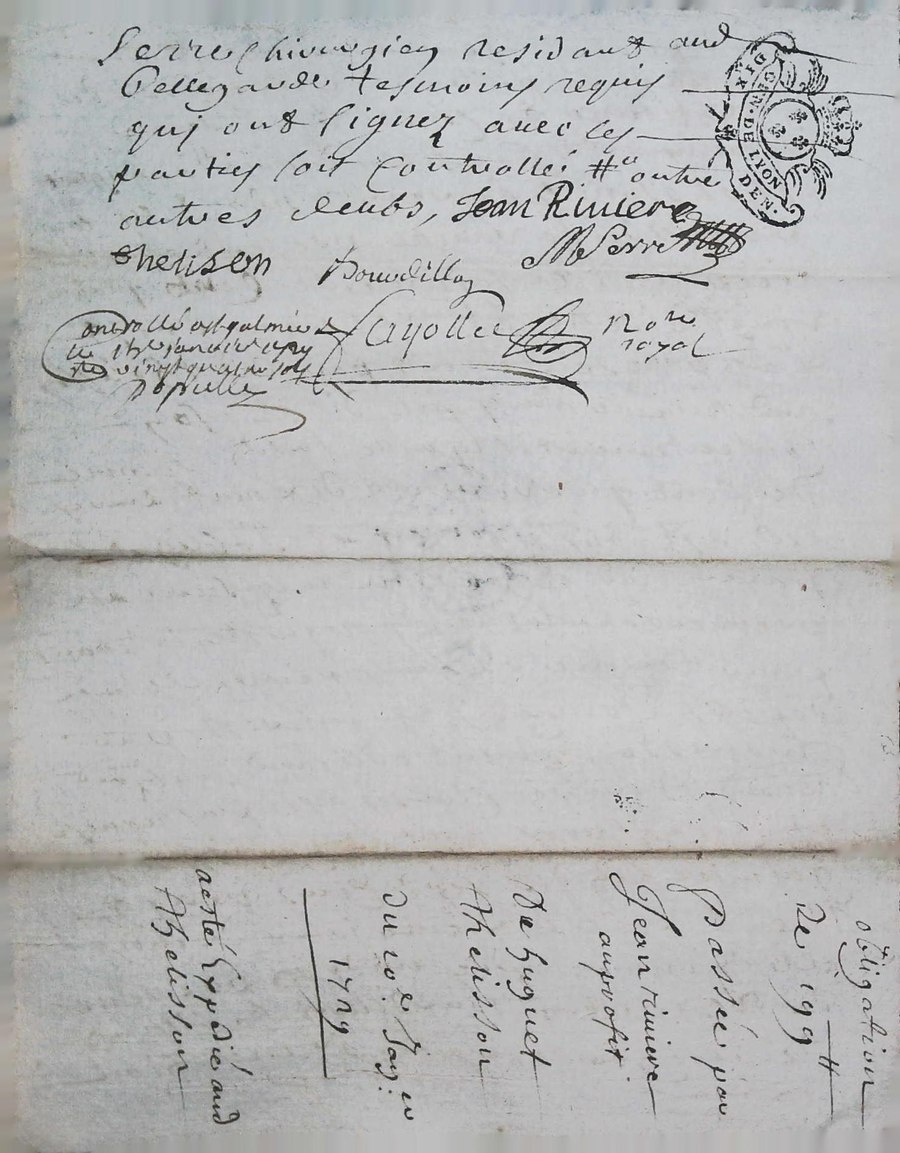 Serre Chirurgien residant aud
Bellegarde tesmoins requis
quj ont signez avec les
parties soit Controllé ₶ outre
autres deubs, Jean Riviere
thelisson Bourdillon MSerre
No.re
royal
Controllé a St galmier
le janvier 1729
vingt quatre sols
DIX DEN. GEN. DE LYON
obligation
de 199 ₶
Passée par
Jean riviere
au profit
De huguet
thelisson
du 10.e Jan.er
1729
acte Expedié aud
thelisson